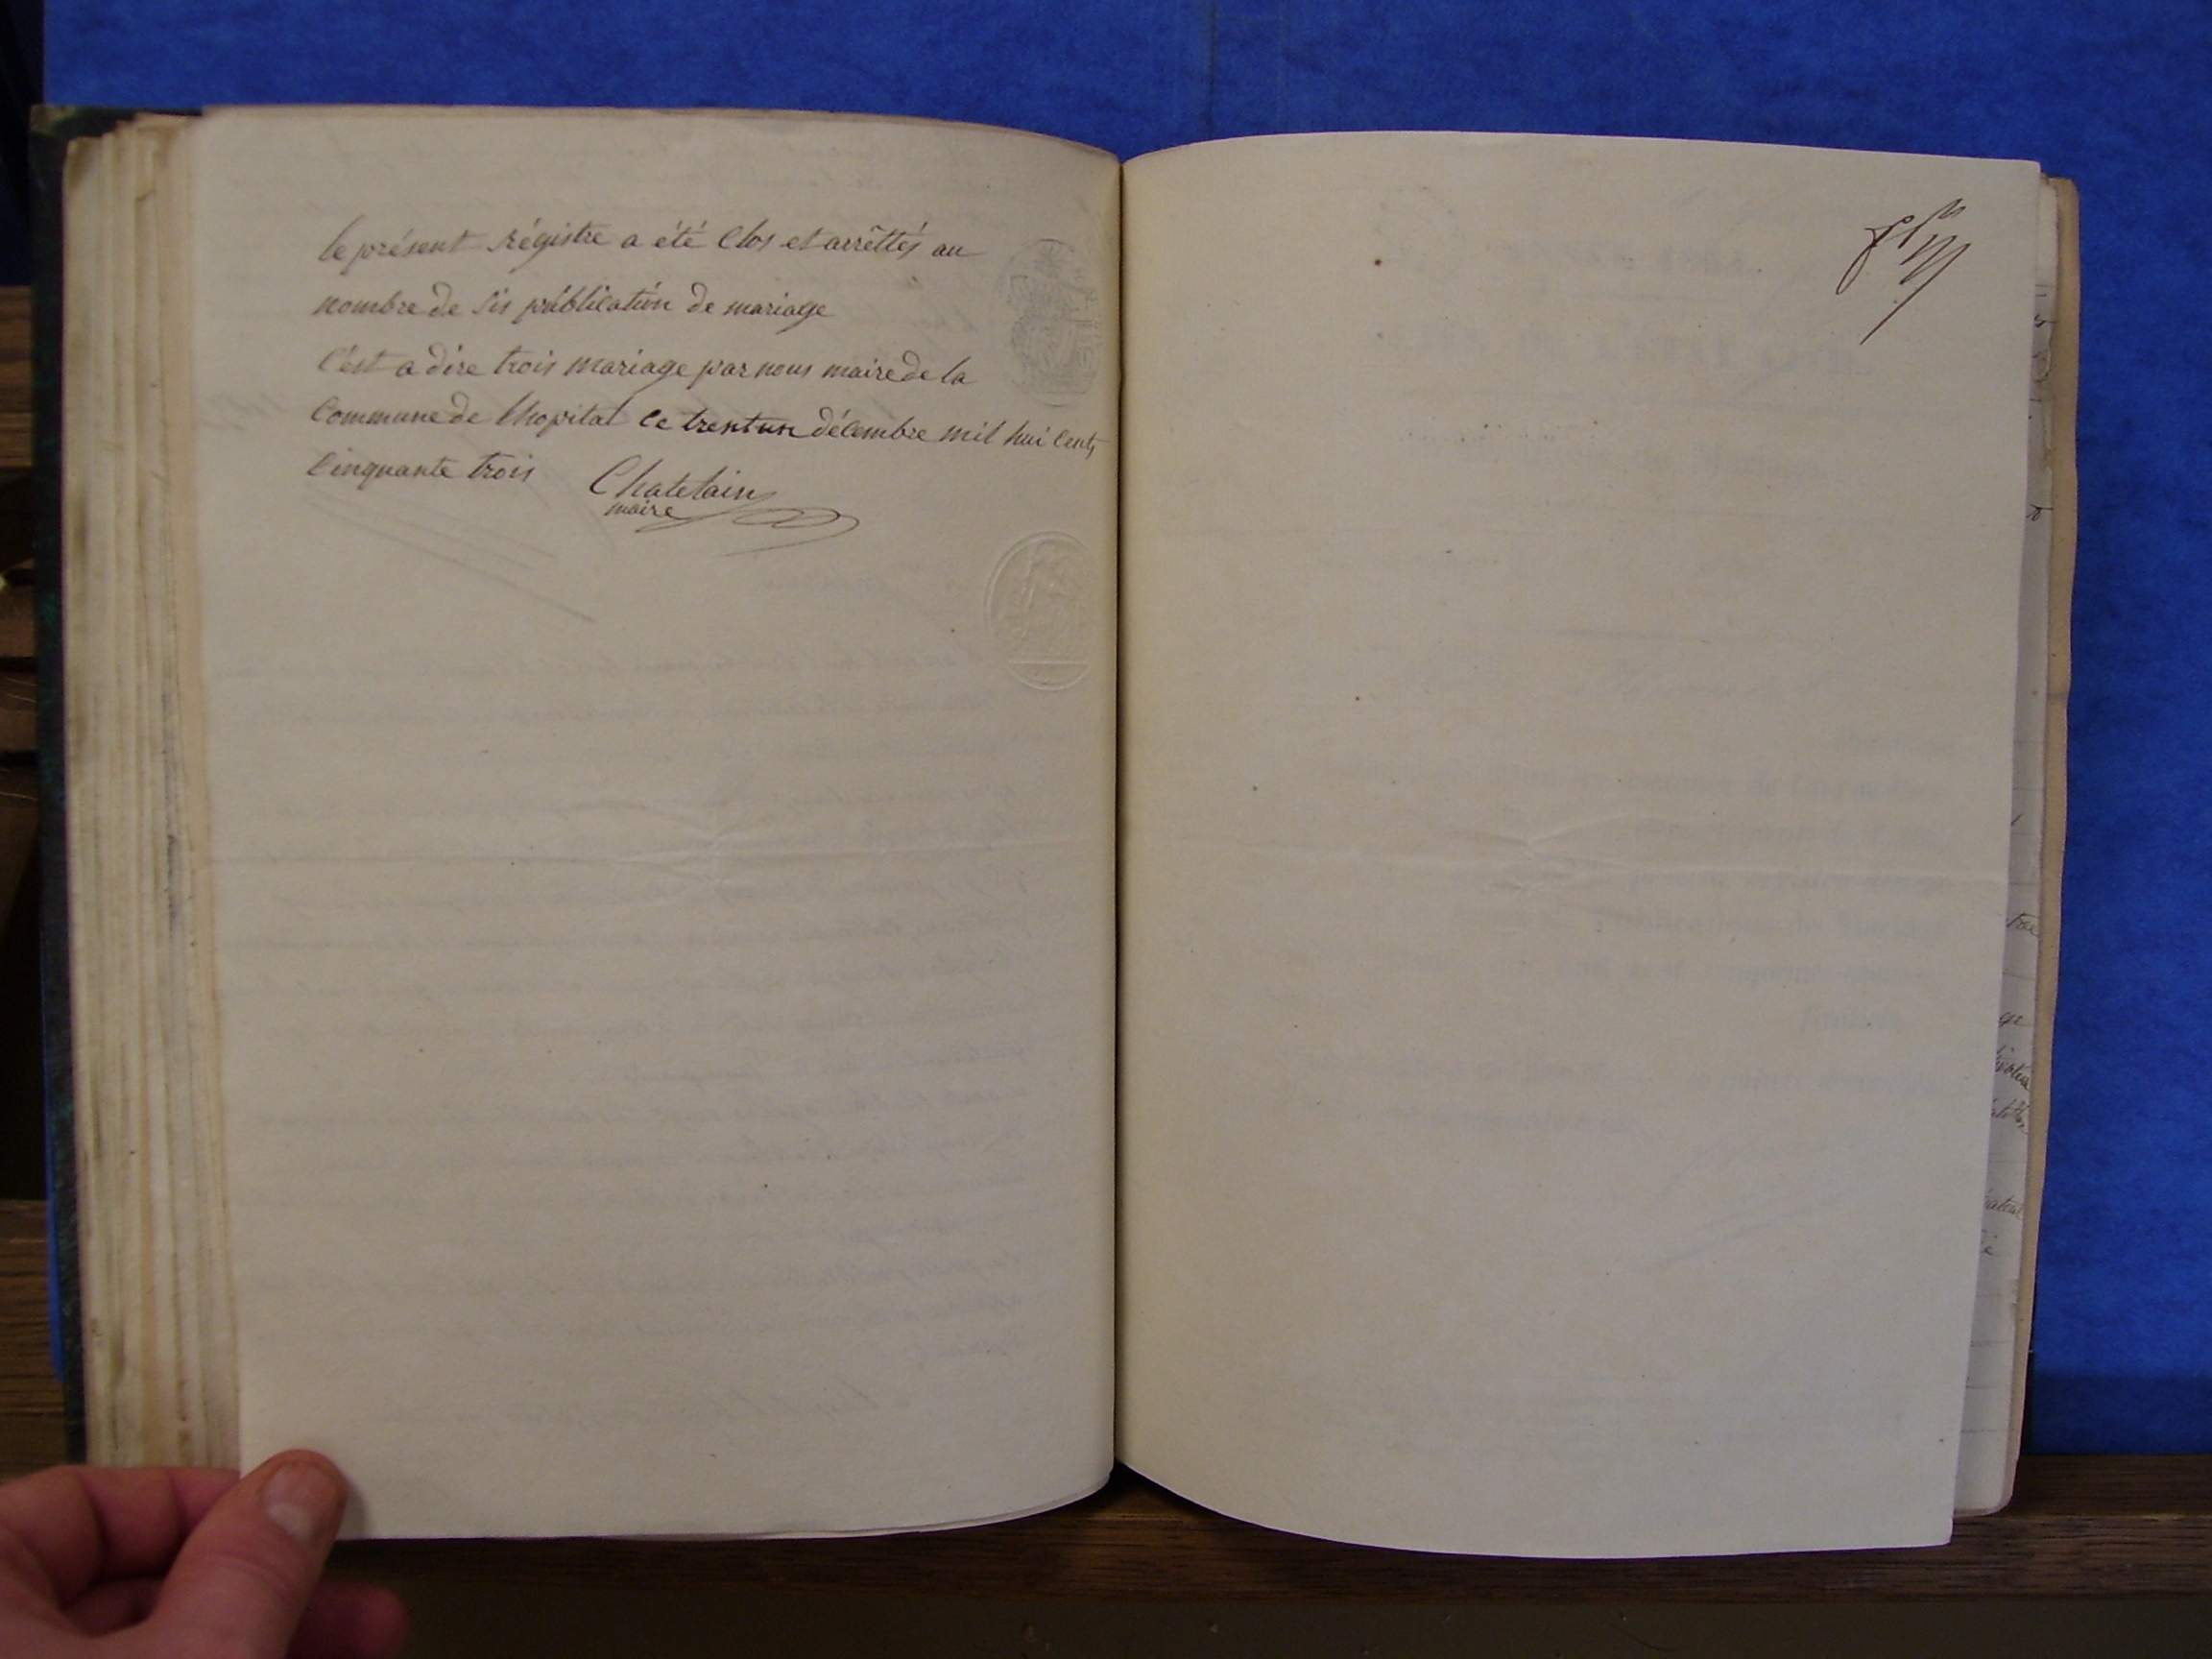 le présent régistre a été Clos et arrêttés au
nombre de Sis publication de mariage
C'est a dire trois mariage par nous maire de la
Commune de Lhopital le trentun décembre mil hui Cents
Cinquante trois Chatelain
maire